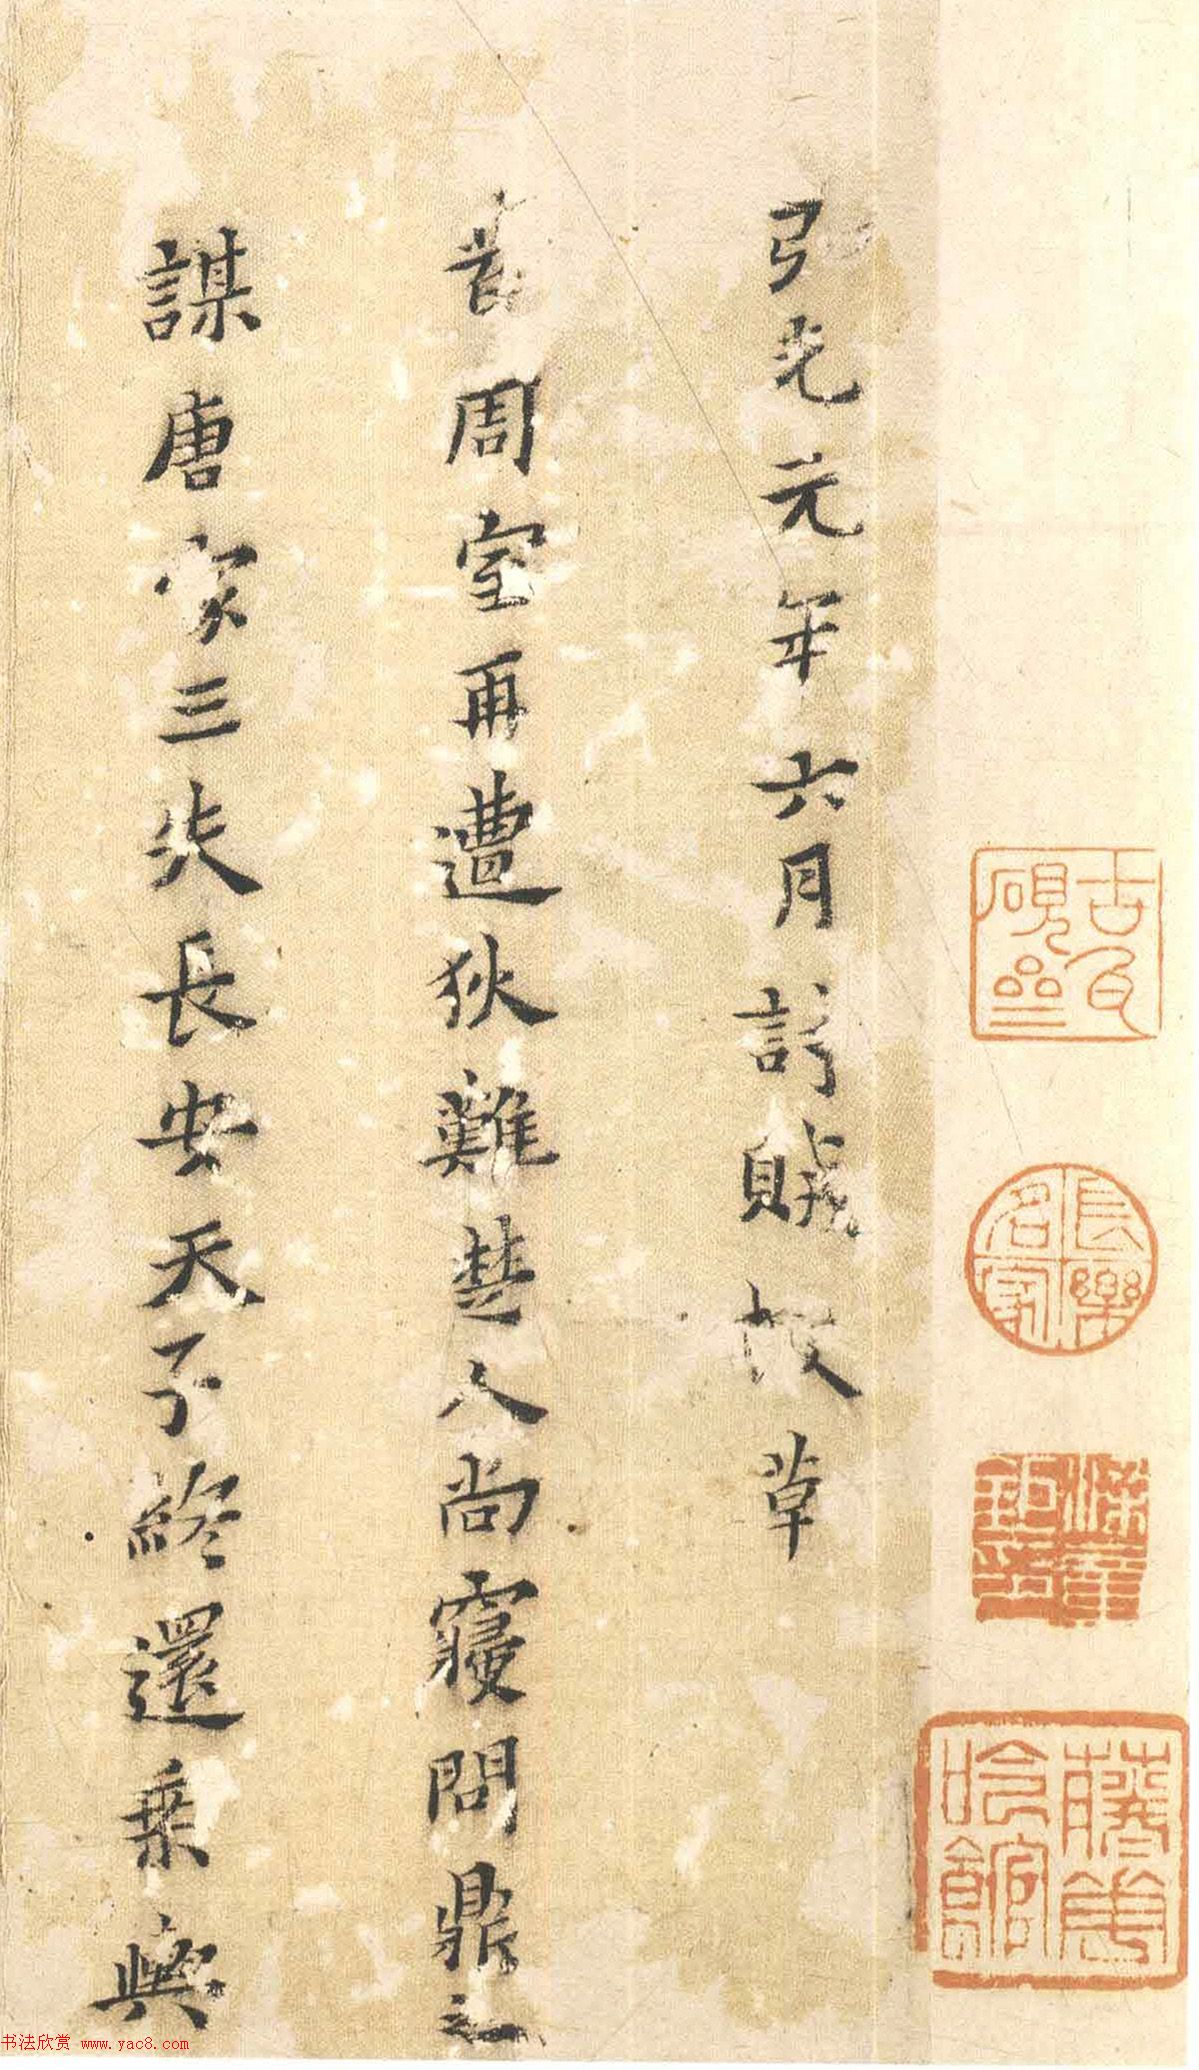 古瓦硯齋
長樂名家
梁章鉅
藤花吟館
弘光元年六月討賊檄草
昔周室再遭狄難楚人尚寢問鼎之
謀唐家三失長安天子終還乘輿
书法欣赏 www.yac8.com